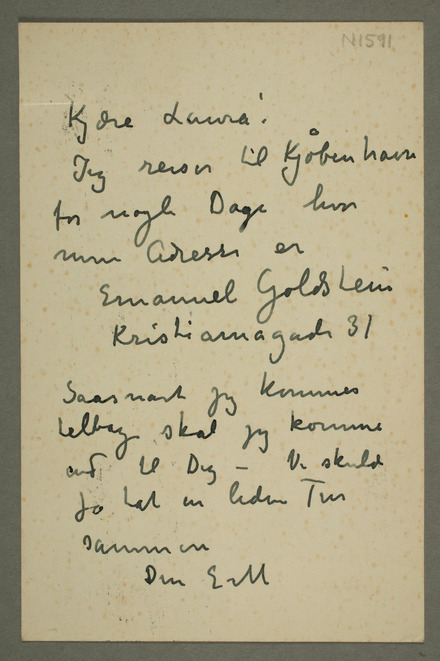 N1591
Kjære Laura!
Jeg reiser til Kjøbenhavn
for nogle Dage hvor
min Adresse er
Emanuel Goldstein
Kristianiagade 31
Saasnart jeg kommer
tilbage skal jeg komme
ud til Dig – Vi skulde
jo tat en liden Tur
sammen
Din E M